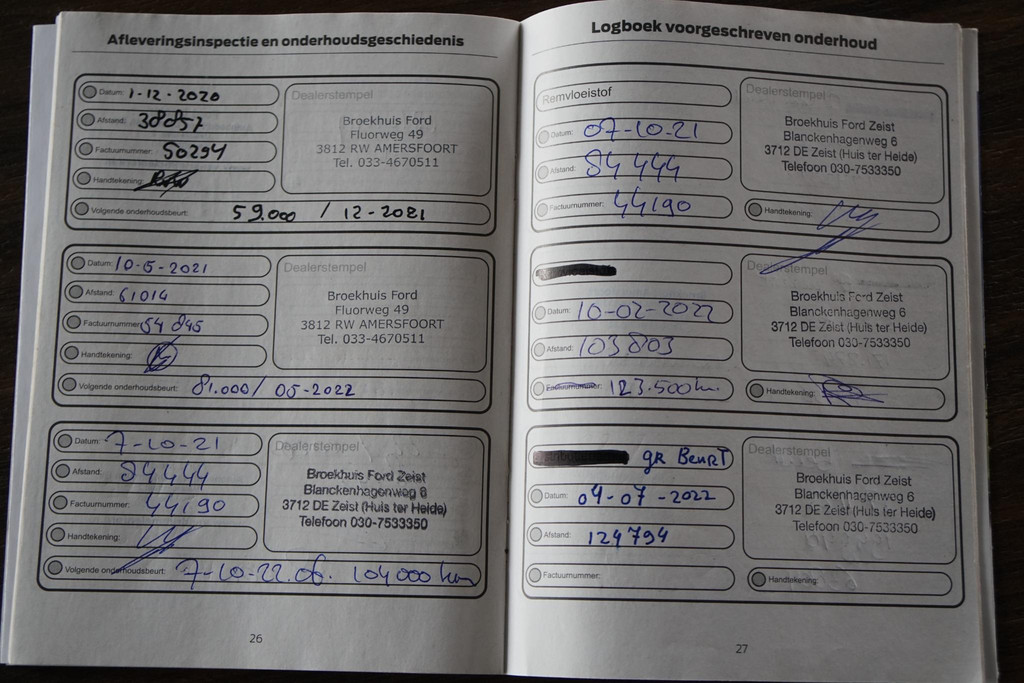 Afleveringsinspectie en onderhoudsgeschiedenis
Datum: 1-12-2020
Afstand: 38857
Factuurnummer: 50294
Handtekening:
Dealerstempel
Broekhuis Ford
Fluorweg 49
3812 RW AMERSFOORT
Tel. 033-4670511
Volgende onderhoudsbeurt: 59.000 / 12-2021
Datum: 10-5-2021
Afstand: 61014
Factuurnummer: 54845
Handtekening:
Dealerstempel
Broekhuis Ford
Fluorweg 49
3812 RW AMERSFOORT
Tel. 033-4670511
Volgende onderhoudsbeurt: 81.000/ 05-2022
Datum: 7-10-21
Afstand: 84444
Factuurnummer: 44190
Handtekening:
Dealerstempel
Broekhuis Ford Zeist
Blanckenhagenweg 6
3712 DE Zeist (Huis ter Heide)
Telefoon 030-7533350
Volgende onderhoudsbeurt: 7-10-22 of 104000 km
26
Logboek voorgeschreven onderhoud
Remvloeistof
Datum: 07-10-21
Afstand: 84444
Factuurnummer: 44190
Dealerstempel
Broekhuis Ford Zeist
Blanckenhagenweg 6
3712 DE Zeist (Huis ter Heide)
Telefoon 030-7533350
Handtekening:
Datum: 10-02-2022
Afstand: 103803
Factuurnummer: 123.500 km.
Dealerstempel
Broekhuis Ford Zeist
Blanckenhagenweg 6
3712 DE Zeist (Huis ter Heide)
Telefoon 030-7533350
Handtekening:
gR BeuRT
Datum: 04-07-2022
Afstand: 124794
Factuurnummer:
Dealerstempel
Broekhuis Ford Zeist
Blanckenhagenweg 6
3712 DE Zeist (Huis ter Heide)
Telefoon 030-7533350
Handtekening:
27